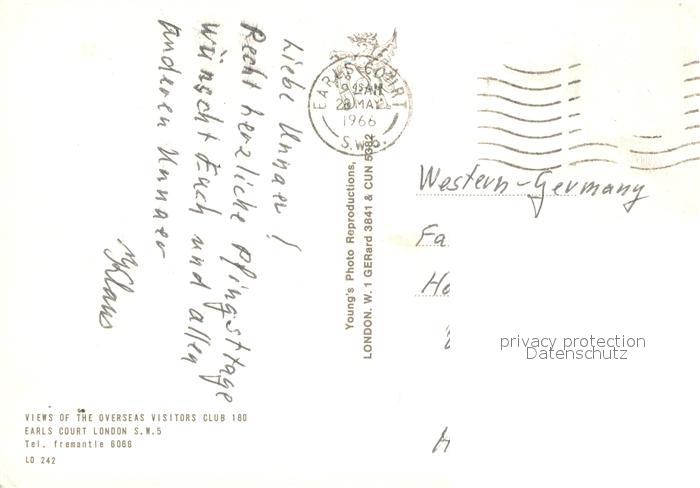 Liebe Unnaer!
Recht herzliche Pfingsttage
wünscht Euch und allen
anderen Unnaer
Klaus
EARLS COURT
9 45 AM
28 MAY
1966
S.W.5.
Young's Photo Reproductions,
LONDON. W. 1 GERard 3841 & CUN 5382
Western-Germany
Fa
He
privacy protection
Datenschutz
VIEWS OF THE OVERSEAS VISITORS CLUB 180
EARLS COURT LONDON S.W.5
Tel. fremantle 6066
LO 242